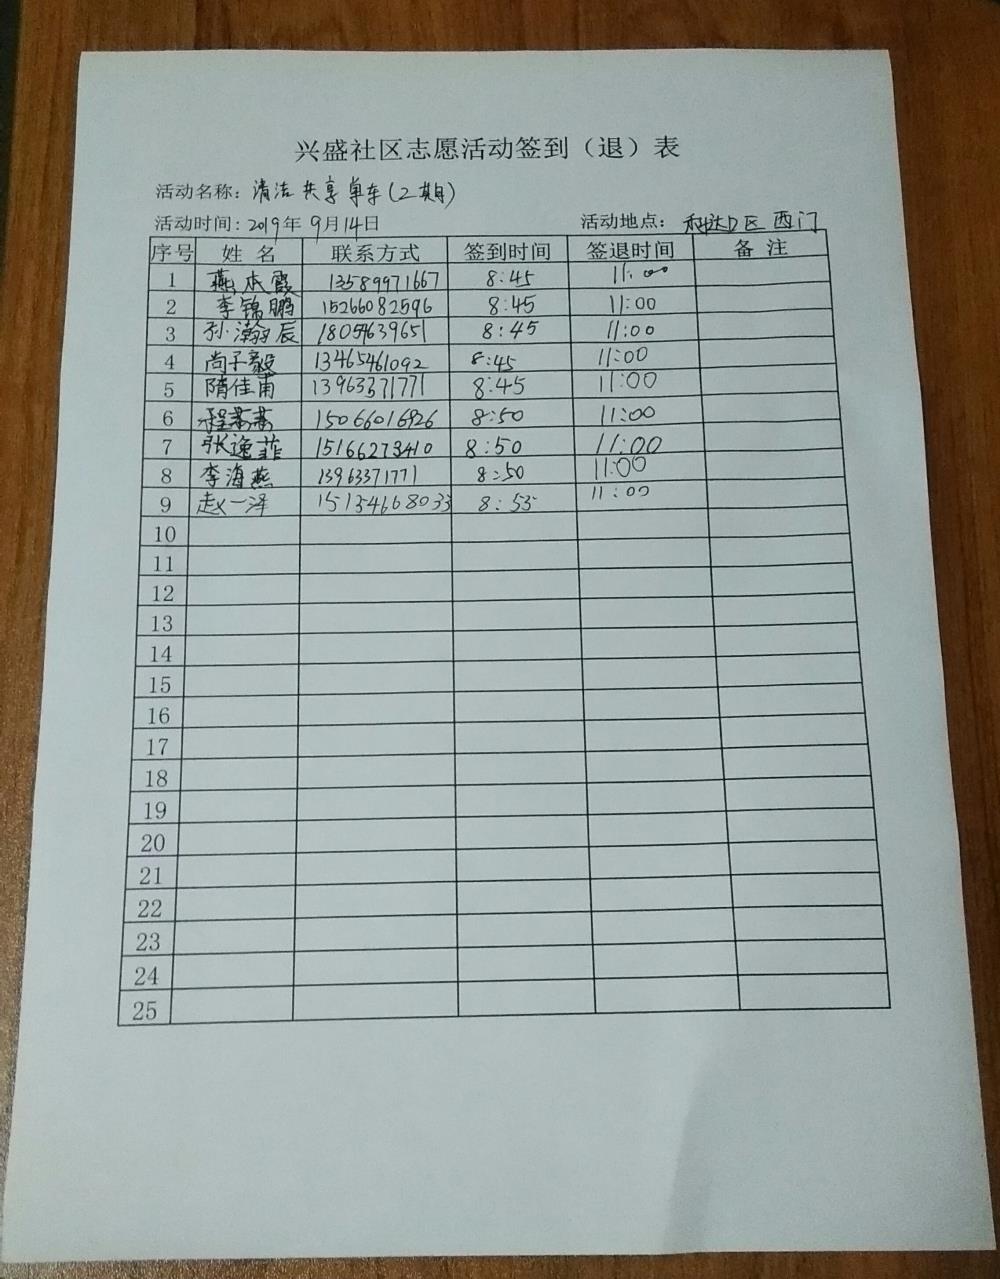 兴盛社区志愿活动签到（退）表
活动名称：清洁共享单车（2期）
活动时间：2019年9月14日 活动地点：利达D区西门
序号 姓名 联系方式 签到时间 签退时间 备注
1 燕本霞 13589971667 8:45 11:00
2 李锦鹏 15266082596 8:45 11:00
3 孙瀚辰 18054639651 8:45 11:00
4 尚子毅 13465461092 8:45 11:00
5 隋佳甫 13963371771 8:45 11:00
6 程燕燕 15066016926 8:50 11:00
7 张逸菲 15166273410 8:50 11:00
8 李海燕 13963371771 8:50 11:00
9 赵一泽 15154668033 8:55 11:00
10
11
12
13
14
15
16
17
18
19
20
21
22
23
24
25